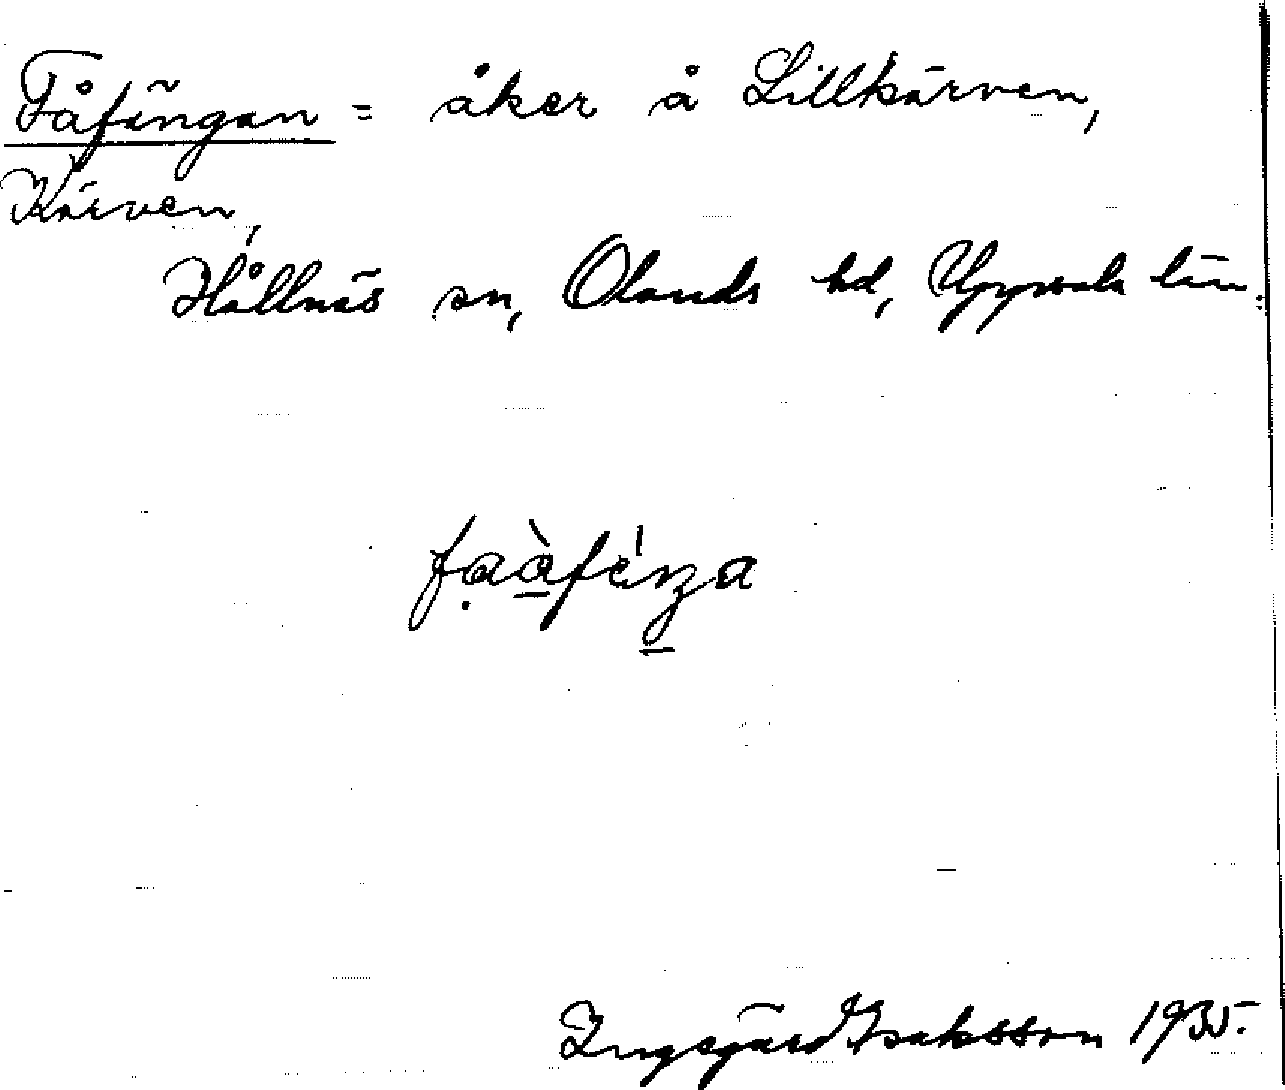 Fåfängan = åker å Lillkärven,
Kärven,
Hållnäs sn, Olands hd, Uppsala län.
Ingegärd Isaksson 1935.